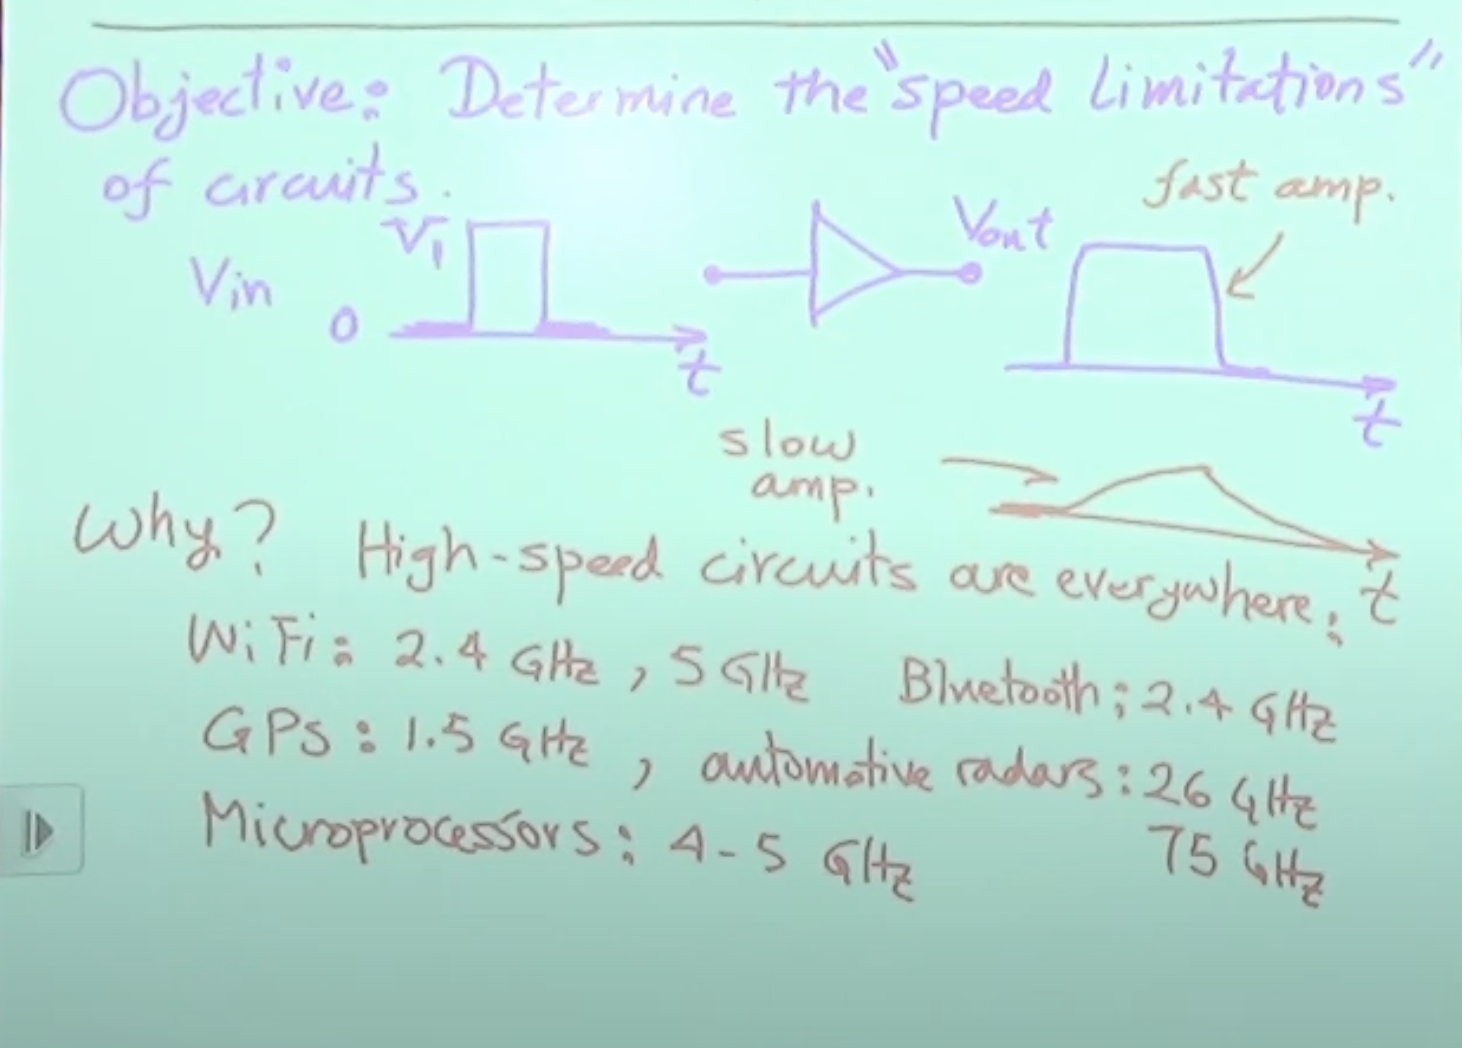 Objective: Determine the "speed Limitations"
of circuits.
fast amp.
V1
Vin
0
t
Vout
t
slow
amp.
Why? High-speed circuits are everywhere:
t
WiFi: 2.4 GHz, 5 GHz Bluetooth: 2.4 GHz
GPS: 1.5 GHz, automotive radars: 26 GHz
75 GHz
Microprocessors: 4-5 GHz